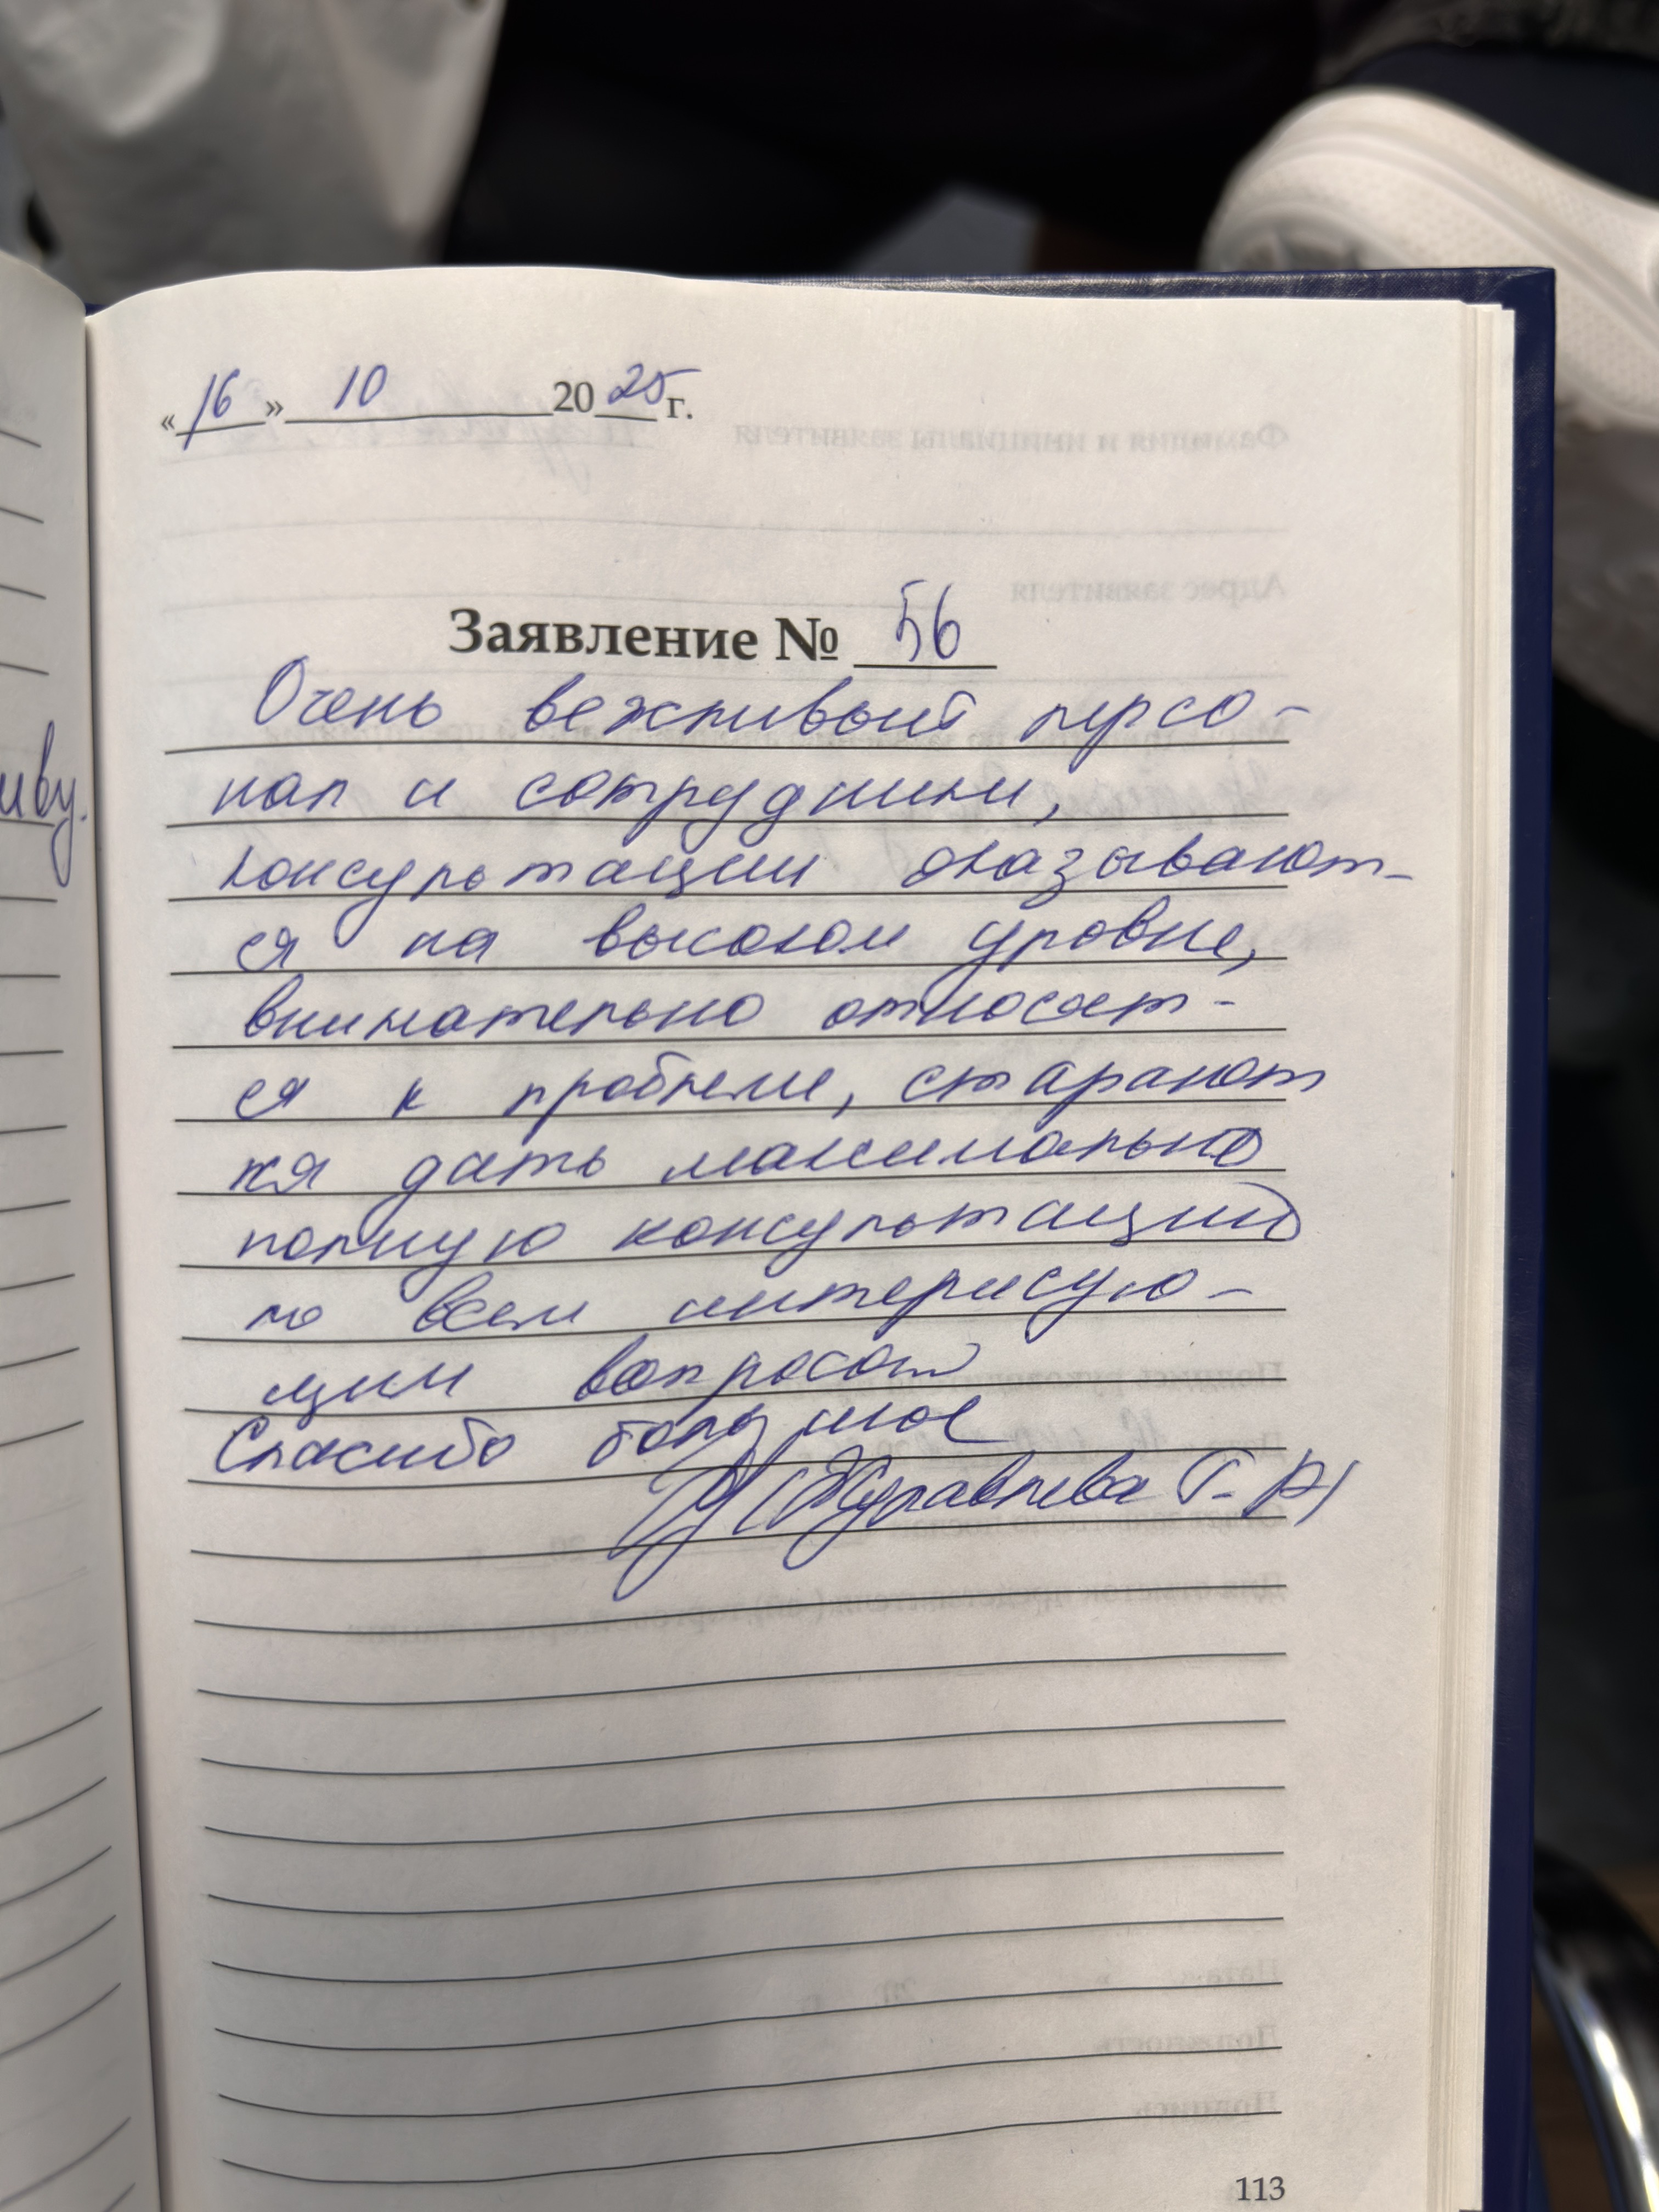 «16» 10 2025 г.
Заявление № 56
Очень вежливый персо-
нал и сотрудники,
консультации оказывают-
ся на высоком уровне,
внимательно относят-
ся к проблеме, старают
ся дать максимально
полную консультацию
по всем интерисую-
щим вопросам
Спасибо большое
(Журавлева Г. А)
иву.
113